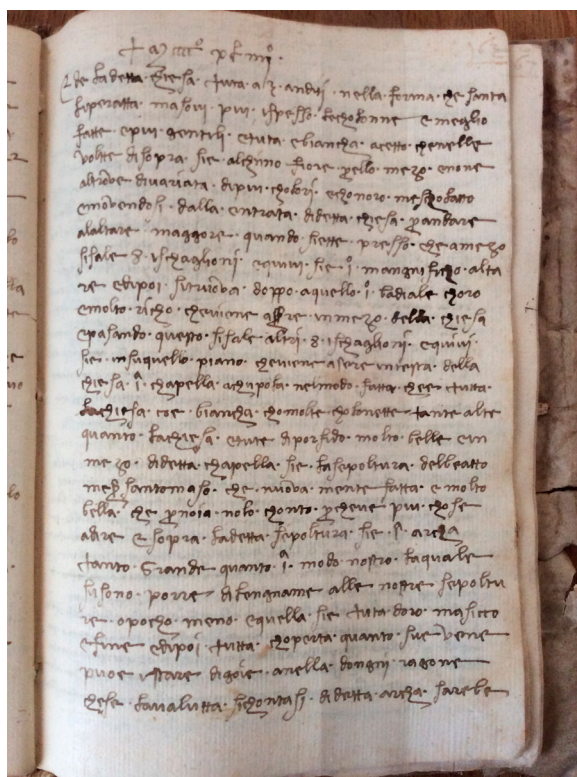 de ladetta chiesa · tuta a 3 · andvi · nella · forma · che santa
liperatta · ma sovi piu · ispesso · lecholonne e meglio
fatte · epiu · gentili · etuta · ebiancha · acetto · chenelle
volte disopra · sie · alchuno · fiore · pello · mezo · enone
altrove divariata · dipiu · cholori · echonoro · meschollatto
emovendosi · dalla · entrata · didetta · chiesa · per andare
alaltare maggore · quando · siette · presso · che amezo
sisale · 8 · ischaglioni · equivi · sie · i · mangnificho · alta
re edipoi · sitruova · doppo · aquello · i · ladiale choro
emolto · richo · cheviene · inmezo · della · chiesa
epasando · questo · sisale altri · 8 · ischaglioni · equivi ·
sie · insuquello · piano · cheviene · asere intesta · della
chiesa · i · chapella · achupola · nelmodo · fatta · chee · tutta
lachiesa · coe · biancha · chomolte · cholonette · tante alte
quanto · lachiesa · etute · diporfido · molto · belle · ein
mezo · didetta · chapella · sie · lasepoltura · delbeatto
santomaso · che · nuova · mente · fatta · e molto
bella · che per noia · nolo · chonto · percheve · piu · chose
adire · e sopra · ladetta · sepoltura · sie · i · archa
tanto · Grande · quanto · i · modo · nostro · laquale
sisono · porre · dilengname · alle · nostre · sepoltu
re · opocho · meno · equella · sie · tuta · doro · masicco
efine · edipoi · tutta · choperta · quanto · sue · vene
puoe · istare · digoie · anella · dongni · ragone
chese · lavalutta · sichontasi · didetta · archa · sarebe